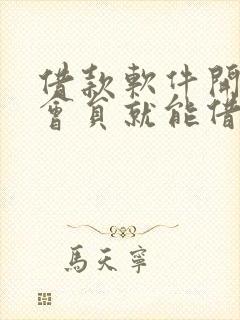 借款軟件開
會員就能借
馬天寧